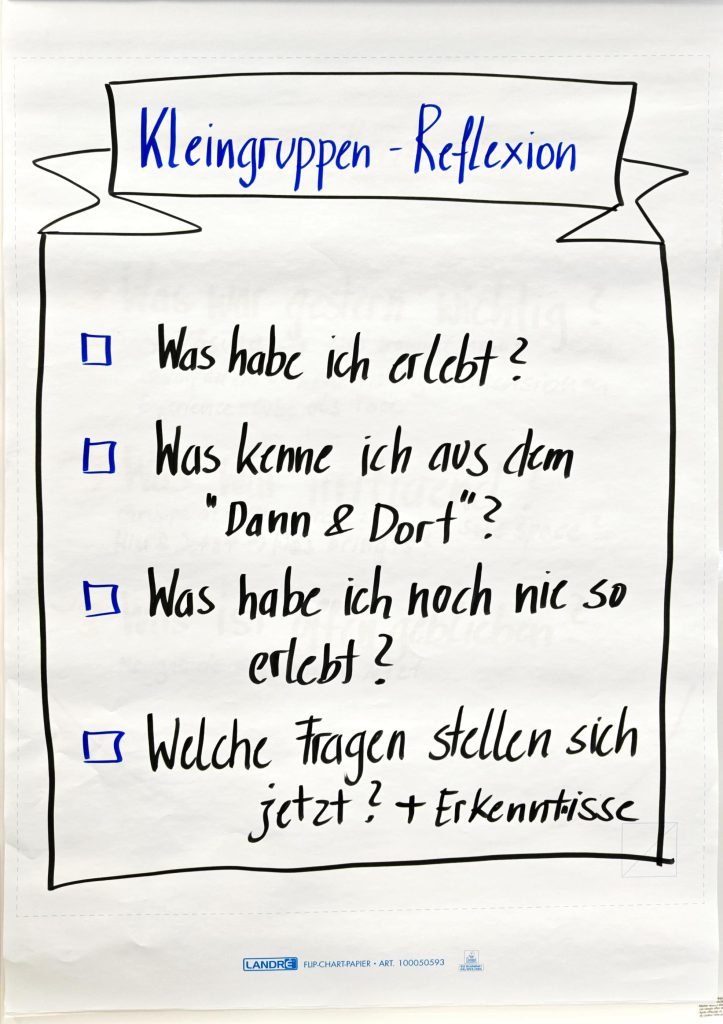 Kleingruppen - Reflexion
Was habe ich erlebt?
Was kenne ich aus dem
"Dann & Dort"?
Was habe ich noch nie so
erlebt?
Welche Fragen stellen sich
jetzt? + Erkenntnisse
LANDRÉ FLIP-CHART-PAPIER • ART. 100050593